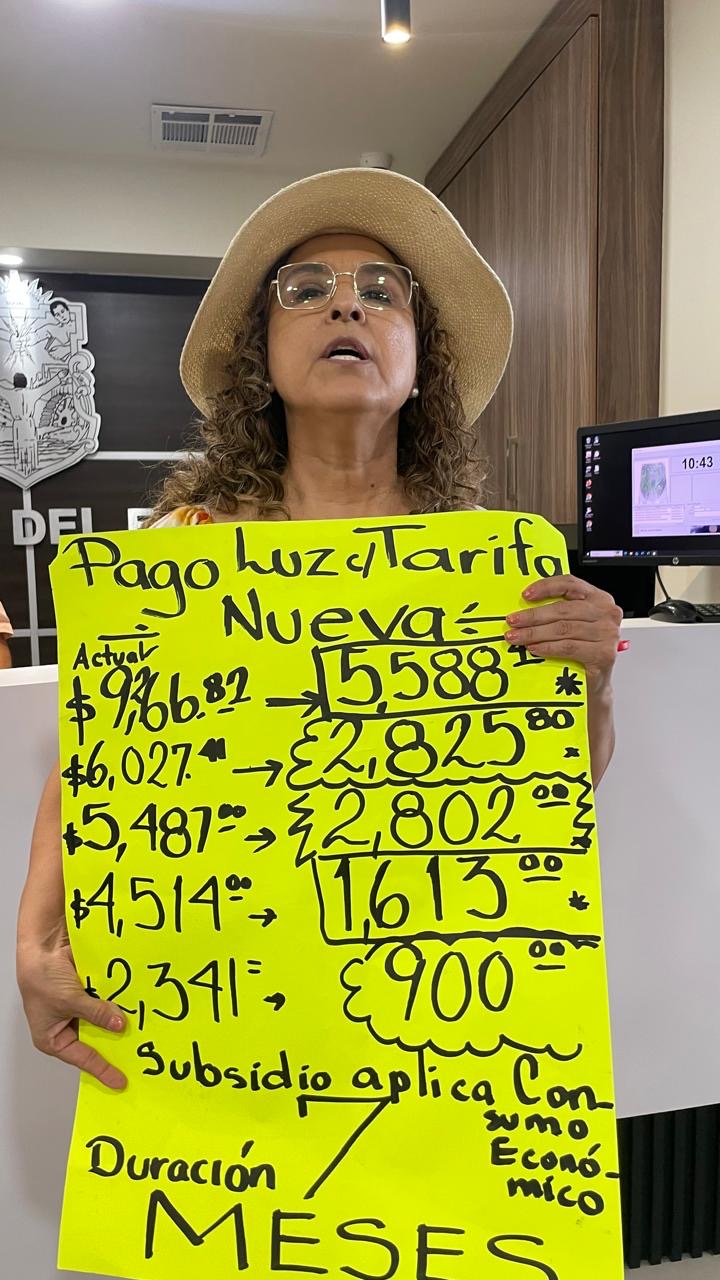 DEL
10:43
hp
Pago Luz c/Tarifa
Nueva
Actual
$6,027.41 → 2,825 80
$5,487 00 → 2,802 00
$4,514 00 → 1,613 00
$2,341 = → 900 00
Subsidio aplica Con-
sumo
Econó-
mico
Duración 7
MESES